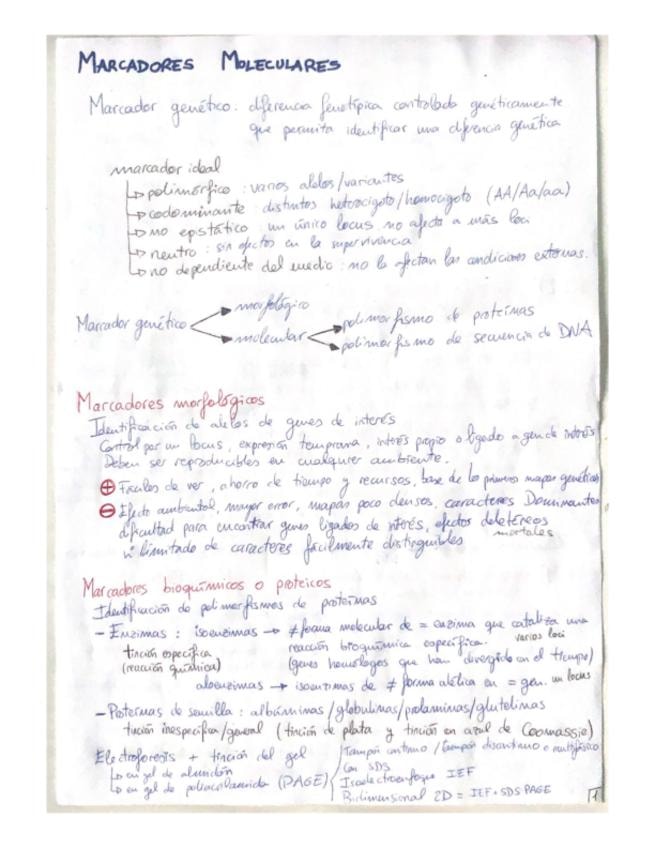 MARCADORES MOLECULARES
Marcador genético: diferencia fenotípica controlada genéticamente
que permita identificar una diferencia genética
marcador ideal
↳ polimórfico: varios alelos/variantes
↳ codominante: distintos heterocigoto/homocigoto (AA/Aa/aa)
↳ no epistático: un único locus no afecta a más loci
↳ neutro: sin efectos en la supervivencia
↳ no dependiente del medio: no la afectan las condiciones externas.
Marcador genético
morfológico
molecular
polimorfismo de proteínas
polimorfismo de secuencia de DNA
Marcadores morfológicos
Identificación de alelos de genes de interés
Control por un locus, expresión temprana, interés propio o ligado a gen de interés
Deben ser reproducibles en cualquier ambiente.
⊕ Fáciles de ver, ahorro de tiempo y recursos, base de los primeros mapas genéticos
⊖ Efecto ambiental, mayor error, mapas poco densos, caracteres Dominantes
dificultad para encontrar genes ligados de interés, efectos deletéreos
mortales
nº limitado de caracteres fácilmente distinguibles
Marcadores bioquímicos o proteicos
Identificación de polimorfismos de proteínas
- Enzimas: isoenzimas → ≠ forma molecular de = enzima que cataliza una
reacción bioquímica específica. varios loci
tinción específica
(reacción química)
(genes homólogos que han divergido en el tiempo)
aloenzimas → isoenzimas de ≠ forma alélica en = gen. un locus
- Proteínas de semilla: albúminas/globulinas/prolaminas/glutelinas
tinción inespecífica/general (tinción de plata y tinción en azul de Coomassie)
Electroforesis + tinción del gel
↳ en gel de almidón
↳ en gel de poliacrilamida (PAGE)
Tampón continuo/tampón discontinuo o multifásico
Con SDS
Isoelectroenfoque IEF
Bidimensional 2D = IEF + SDS PAGE
1